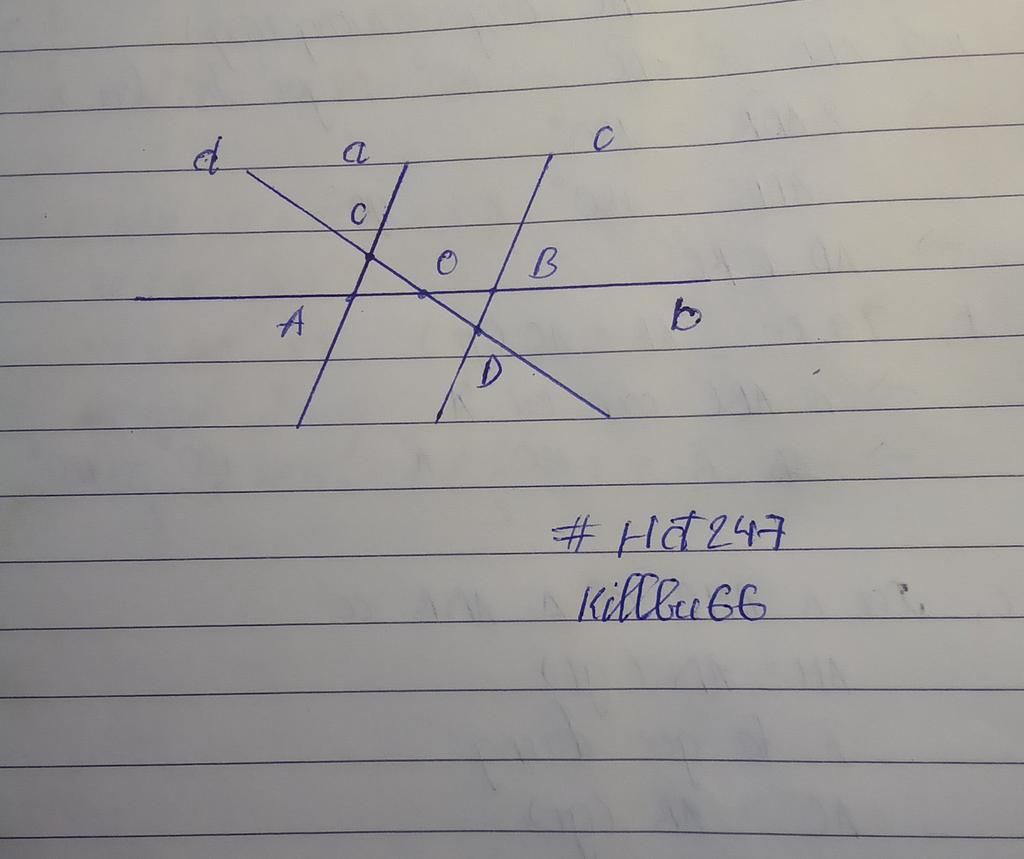 d a c
C
O B
A b
D
# Hdt247
Killbu66